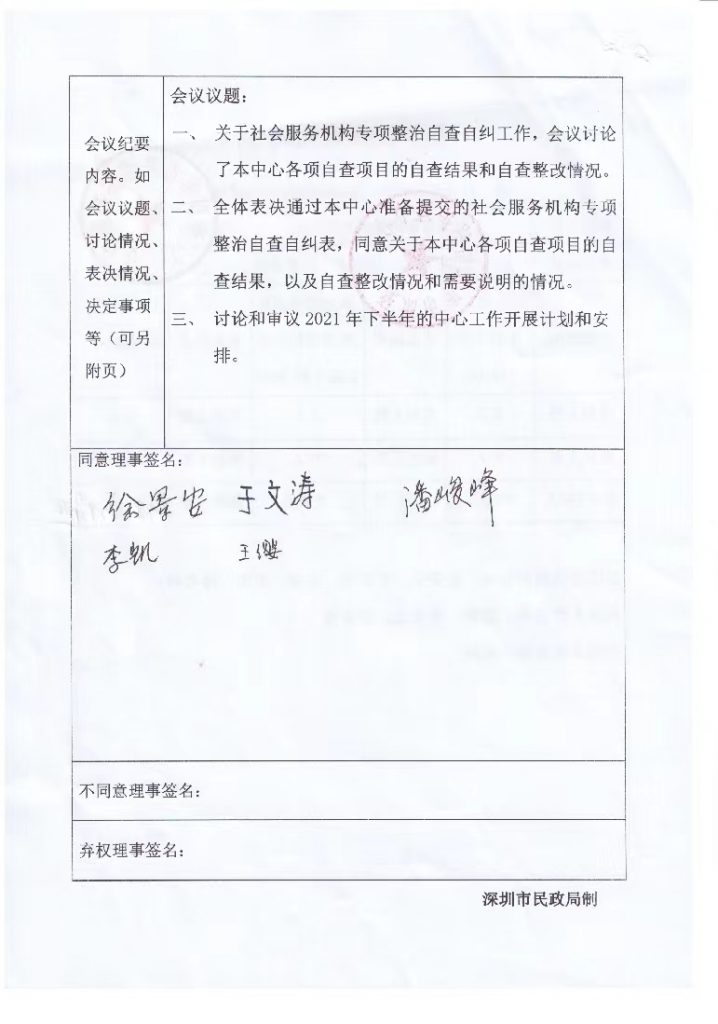 会议纪要
内容。如
会议议题、
讨论情况、
表决情况、
决定事项
等（可另
附页）
会议议题：
一、 关于社会服务机构专项整治自查自纠工作，会议讨论
了本中心各项自查项目的自查结果和自查整改情况。
二、 全体表决通过本中心准备提交的社会服务机构专项
整治自查自纠表，同意关于本中心各项自查项目的自
查结果，以及自查整改情况和需要说明的情况。
三、 讨论和审议 2021 年下半年的中心工作开展计划和安
排。
同意理事签名：
徐景安 于文涛 潘峻峰
李凯 王缨
不同意理事签名：
弃权理事签名：
深圳市民政局制